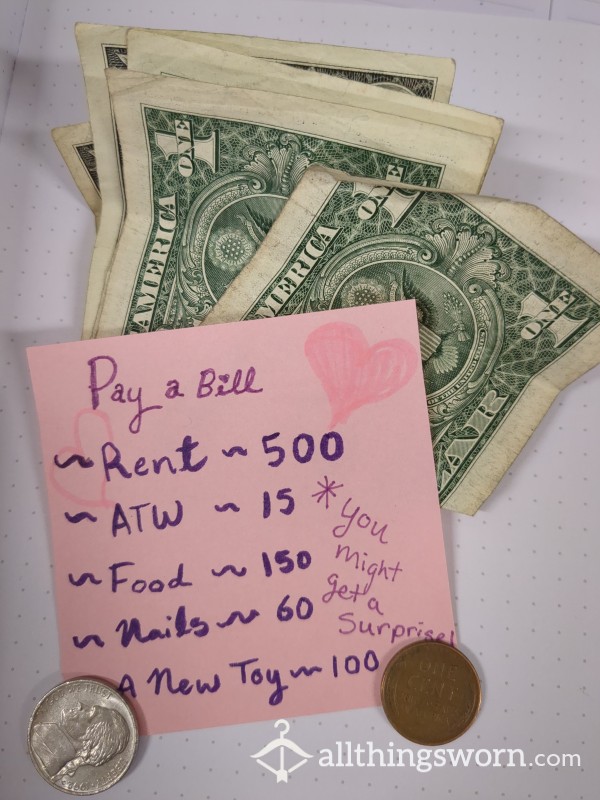 ONE 1
AMERICA
ONE 1
AMERICA
ONE 1
Pay a Bill
~ Rent ~ 500
~ ATW ~ 15
~ Food ~ 150
~ Nails ~ 60
A New Toy ~ 100
* You
might
get a
Surprise!
ONE
CENT
allthingsworn.com